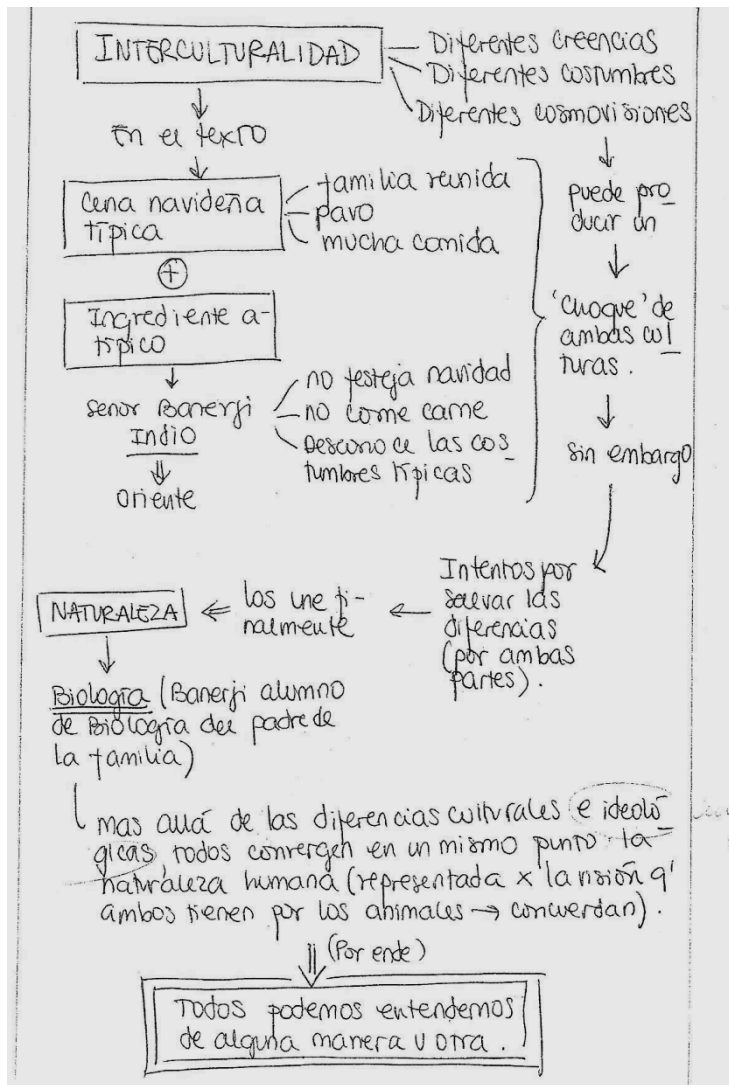 INTERCULTURALIDAD
Diferentes creencias
Diferentes costumbres
Diferentes cosmovisiones
En el texto
Cena navideña
típica
familia reunida
pavo
mucha comida
puede pro_
ducir un
'Choque' de
ambas cul_
turas.
Sin embargo
+
Ingrediente a-
típico
Señor Banerji
Indio
Oriente
no festeja navidad
no come carne
Desconoce las cos_
tumbres típicas
Intentos por
salvar las
diferencias
(por ambas
partes).
los une fi-
nalmente
NATURALEZA
Biología (Banerji alumno
de Biología del padre de
la familia)
mas allá de las diferencias culturales e ideoló_
gicas todos convergen en un mismo punto: la
naturaleza humana (representada x la visión q'
ambos tienen por los animales → concuerdan).
(Por ende)
Todos podemos entendernos
de alguna manera u otra.